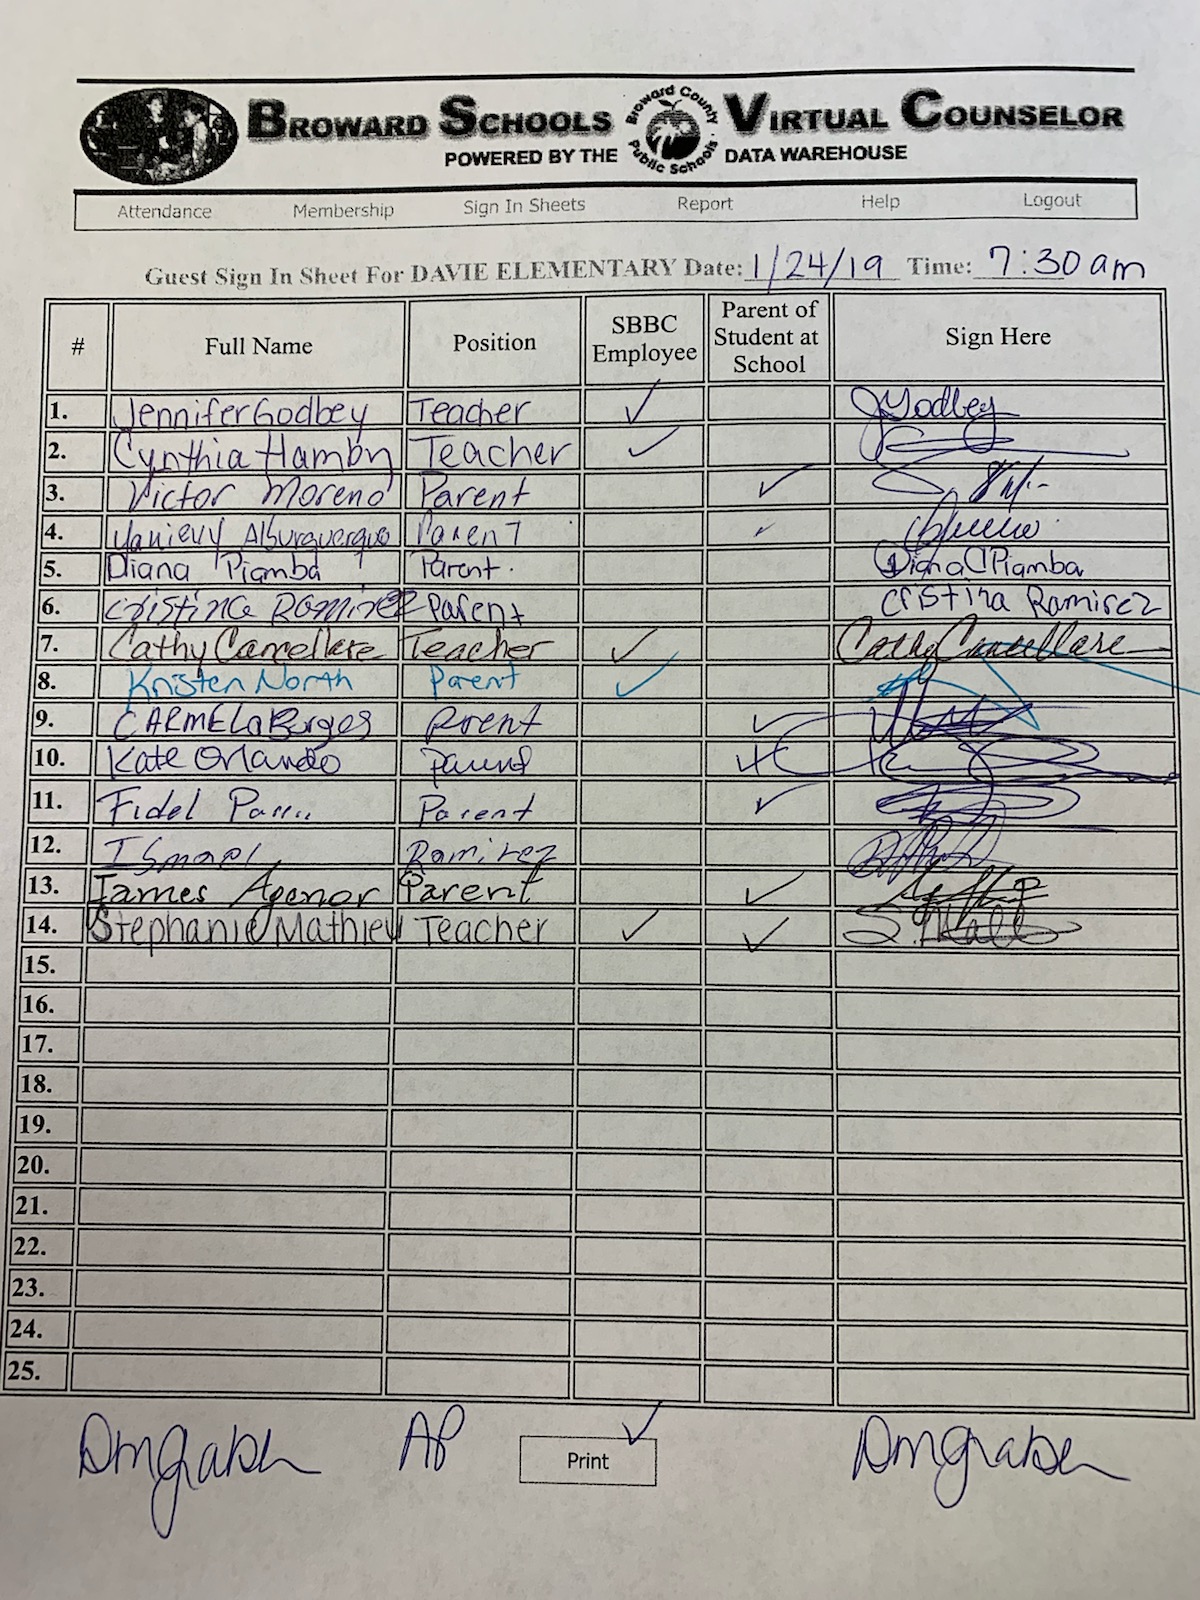 BROWARD SCHOOLS Broward County Public Schools VIRTUAL COUNSELOR
POWERED BY THE DATA WAREHOUSE
Attendance Membership Sign In Sheets Report Help Logout
Guest Sign In Sheet For DAVIE ELEMENTARY Date: 1/24/19 Time: 7:30 am
# Full Name Position SBBC Employee Parent of Student at School Sign Here
1. Jennifer Godbey Teacher ✓ JGodbey
2. Cynthia Hamby Teacher ✓
3. Victor Moreno Parent ✓
4. Yanievy Alburquerque Parent ✓
5. Diana Piamba Parent. Diana Piamba
6. Cristina Ramirez Parent Cristina Ramirez
7. Cathy Cancellare Teacher ✓ Cathy Cancellare
8. Kristen North Parent ✓
9. CARMELa Burgos Parent ✓
10. Kate Orlando Parent
11. Fidel Parent ✓
12. Ismael Ramirez
13. James Agenor Parent ✓
14. Stephanie Mathieu Teacher ✓ ✓
15.
16.
17.
18.
19.
20.
21.
22.
23.
24.
25.
AP Print ✓